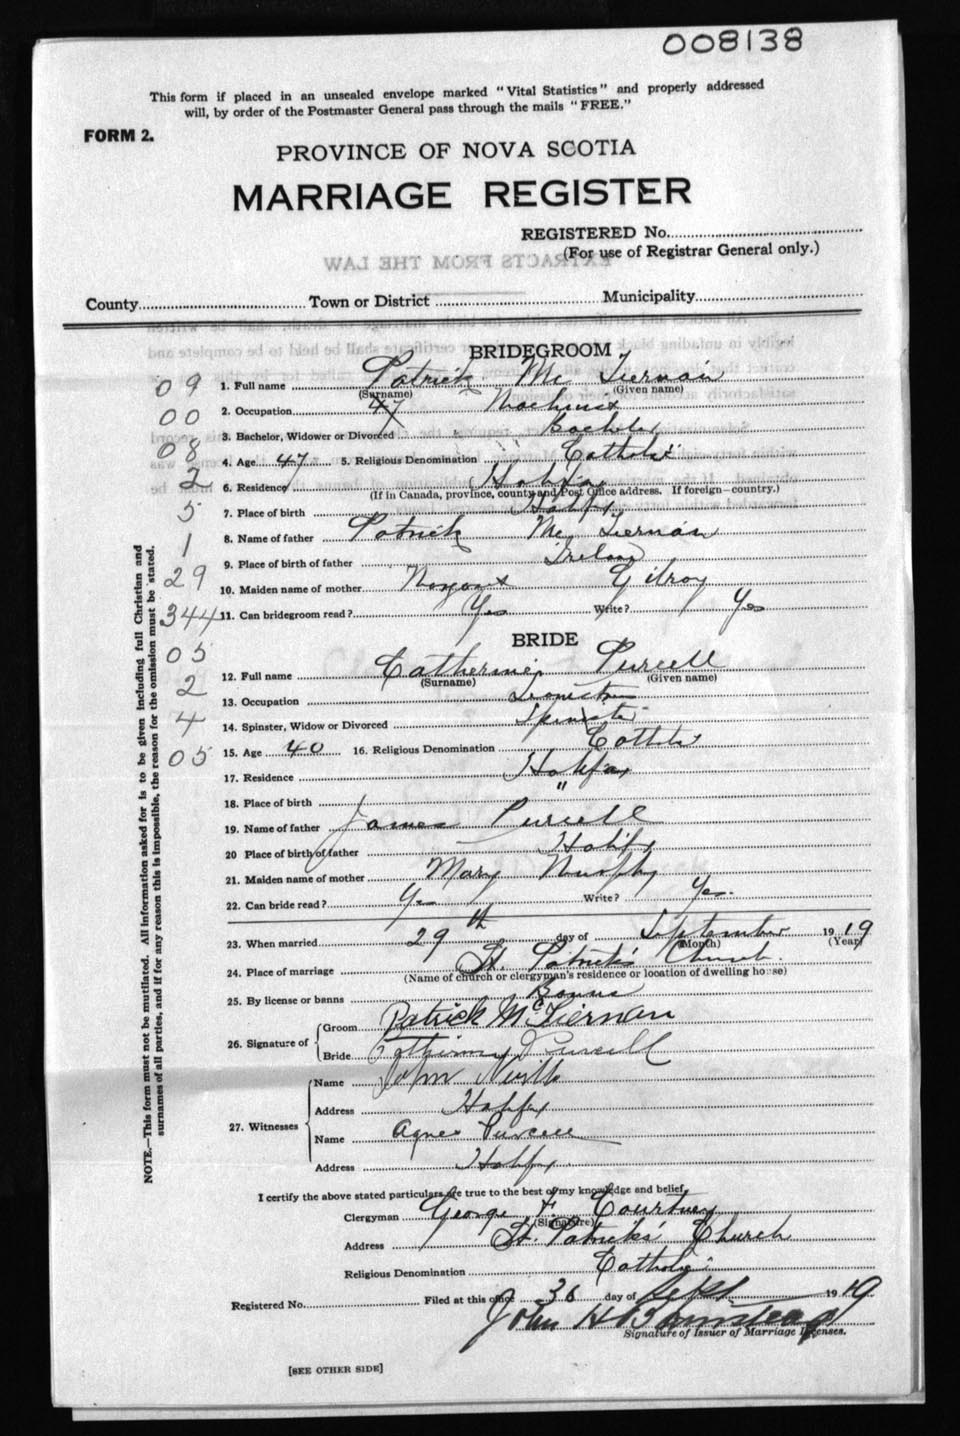 008138
This form if placed in an unsealed envelope marked "Vital Statistics" and properly addressed
will, by order of the Postmaster General pass through the mails "FREE."
FORM 2.
PROVINCE OF NOVA SCOTIA
MARRIAGE REGISTER
REGISTERED No.
(For use of Registrar General only.)
EXTRACTS FROM THE LAW
County Town or District Municipality
BRIDEGROOM
09 1. Full name Patrick Mc Tiernan
(Surname) (Given name)
00 2. Occupation 47 Machinist
3. Bachelor, Widower or Divorced Bachelor
08 4. Age 47 5. Religious Denomination Catholic
2 6. Residence Halifax
(If in Canada, province, county and Post Office address. If foreign—country.)
5 7. Place of birth Halifax
8. Name of father Patrick Mc Tiernan
1 9. Place of birth of father Ireland
29 10. Maiden name of mother Margaret Gilroy
344 11. Can bridegroom read? Yes Write? Yes
BRIDE
05 12. Full name Catherine Purcell
(Surname) (Given name)
2 13. Occupation
4 14. Spinster, Widow or Divorced Spinster
05 15. Age 40 16. Religious Denomination Catholic
17. Residence Halifax
18. Place of birth "
19. Name of father James Purcell
20 Place of birth of father Halifx
21. Maiden name of mother Mary Murphy
22. Can bride read? Yes Write? Yes.
23. When married 29th day of September 1919
(Month) (Year)
24. Place of marriage St. Patrick's Church.
(Name of church or clergyman's residence or location of dwelling house)
25. By license or banns Banns
26. Signature of Groom Patrick McTiernan
Bride Catherine Purcell
27. Witnesses Name John
Address Halifax
Name Agnes Purcell
Address Halifax
I certify the above stated particulars are true to the best of my knowledge and belief.
Clergyman George F. Courtney
(Signature)
Address St. Patrick's Church
Religious Denomination Catholic
Registered No. Filed at this office 30 day of Sept 1919
John H Barnstead
Signature of Issuer of Marriage Licenses.
[SEE OTHER SIDE]
NOTE.—This form must not be mutilated. All information asked for is to be given including full Christian and
surnames of all parties, and if for any reason this is impossible, the reason for the omission must be stated.